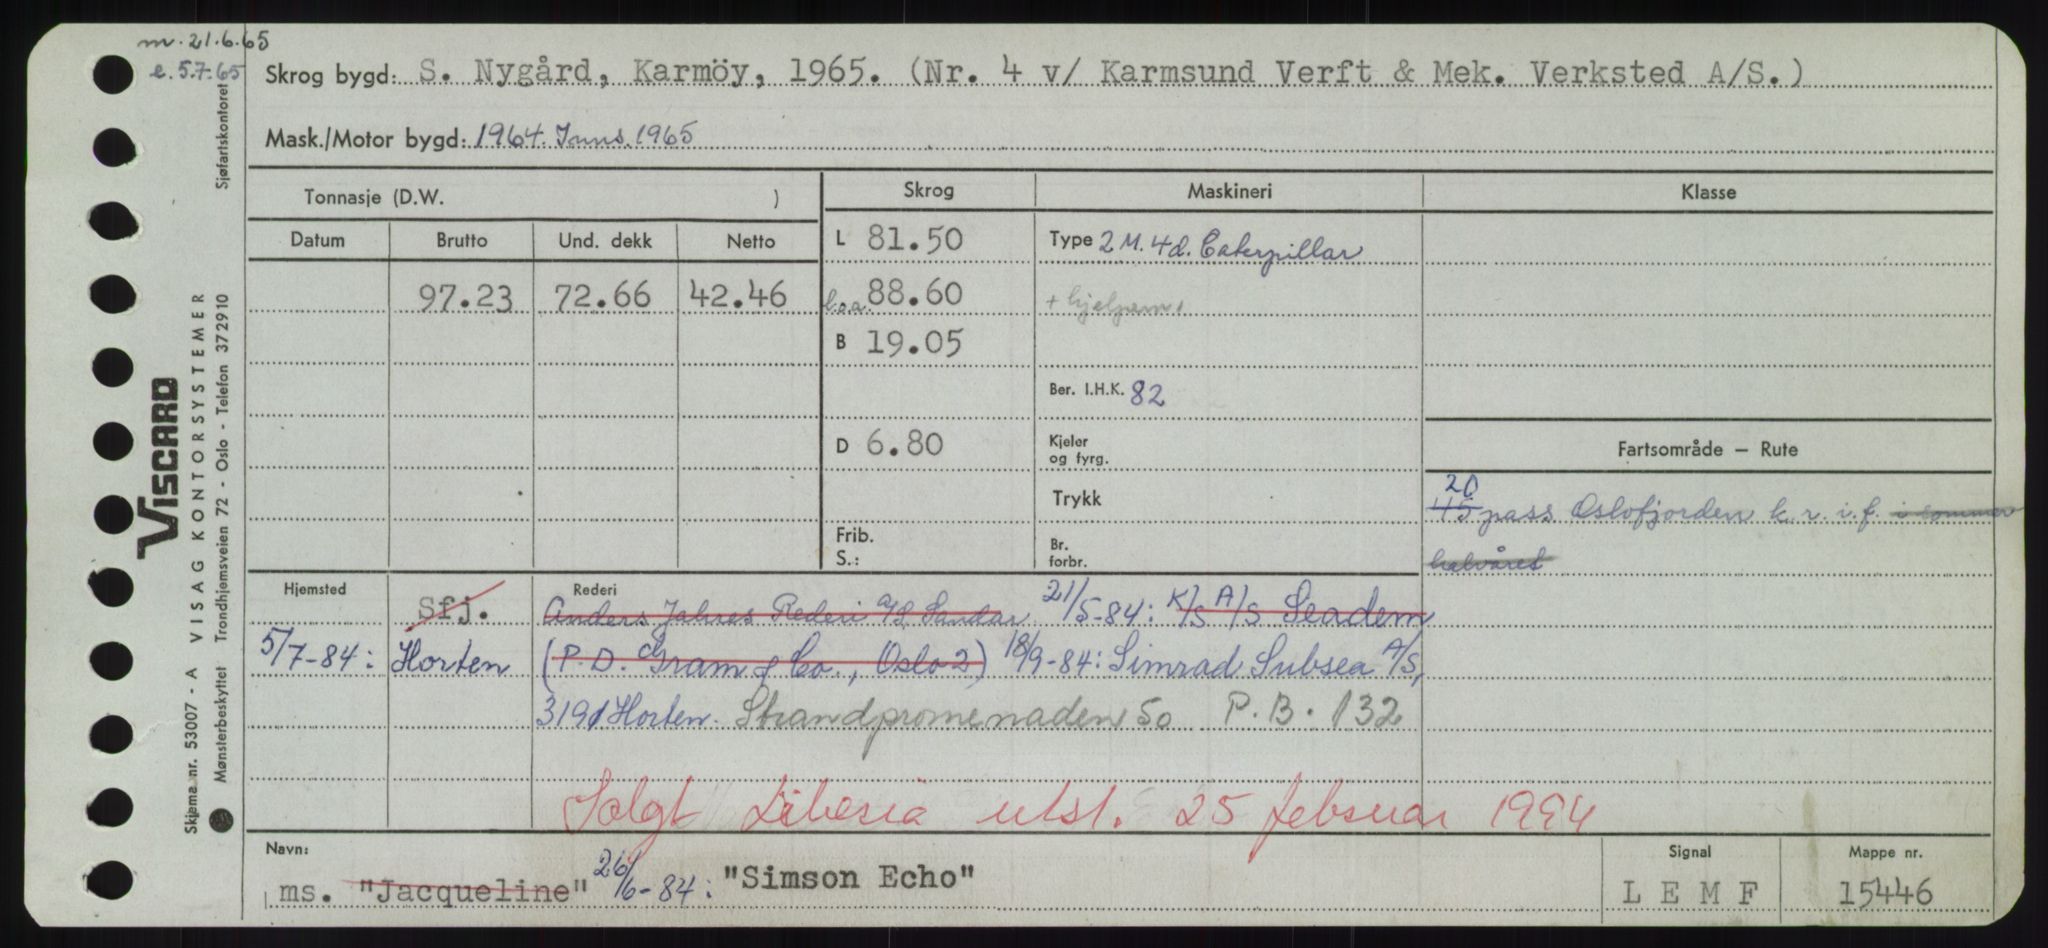 m. 21.6.65
e. 5.7.65
Skrog bygd: S. Nygård, Karmöy, 1965. (Nr. 4 v/ Karmsund Verft & Mek. Verksted A/S.)
Mask./Motor bygd: 1964. Inns. 1965
Tonnasje (D.W. )
Skrog
Maskineri
Klasse
Datum Brutto Und. dekk Netto
L 81.50
Type 2 M. 4d. Caterpillar
97.23 72.66 42.46
l.o.a. 88.60
+ hjelpem.
B 19.05
Ber. I.H.K. 82
D 6.80
Kjeler
og fyrg.
Fartsområde — Rute
Trykk
20
45 pass Oslofjorden k. r. i. f. i sommer
halvåret
Frib.
S.:
Br.
forbr.
Hjemsted
Sfj.
Rederi
Anders Jahres Rederi A/S, Sandar 21/5-84: K/S A/S Seadem
5/7-84: Horten (P.D. Gram & Co., Oslo 2) 18/9-84: Simrad Subsea A/S,
3191 Horten. Strandpromenaden 50 P.B. 132
Solgt Liberia utsl. 25 februar 1994
Navn:
ms. "Jacqueline" 26/6-84: "Simson Echo"
Signal
L E M F
Mappe nr.
15446
Sjøfartskontoret
VISCARD
Skjema nr. 53007 - A VISAG KONTORSYSTEMER
Mønsterbeskyttet Trondhjemsveien 72 - Oslo - Telefon 372910